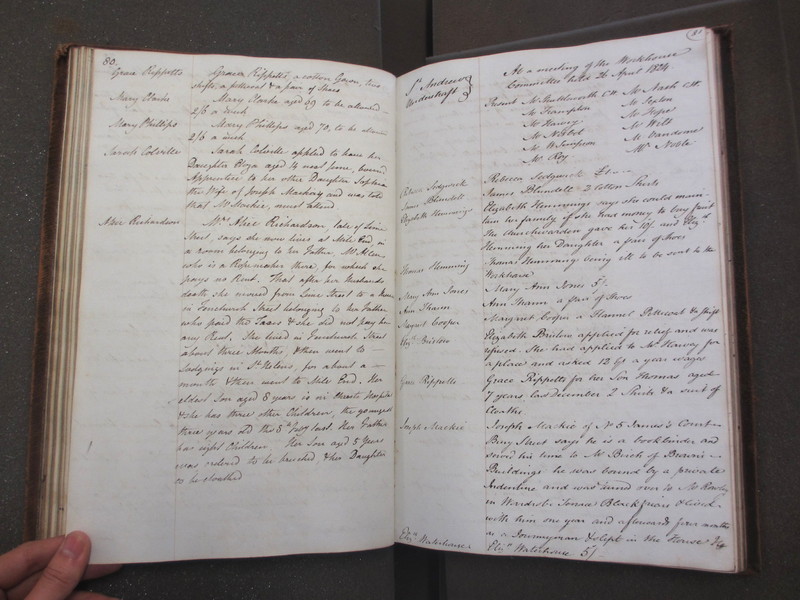 80.
Grace Rippetts
Grace Rippetts, a cotton Gown, two
shifts, a petticoat & a pair of Shoes
Mary Clarke
Mary Clarke aged 69 to be allowed
2/6 a week
Mary Phillips
Mary Phillips aged 70, to be allowed
2/6 a week
Sarah Colville
Sarah Colville applied to have her
Daughter Eliza aged 14 next June, bound
Apprentice to her other Daughter Sophia
the Wife of Joseph Mackay and was told
that Mr Mackie, must attend
Alice Richardson
Mrs Alice Richardson, late of Lime
Street, says she now lives at Mile End, in
a room belonging to her Father Mr Allen
who is a Ropemaker there, for which she
pays no Rent. That after her Husbands
death she moved from Lime Street to a House
in Fenchurch Street belonging to her Father
who paid the Taxes & she did not pay him
any Rent. She lived in Fenchurch Street
about three Months, & then went to
Lodgings in St Helens, for about a
month & then went to Mile End. Her
eldest Son aged 8 years is in Christs Hospital
& she has three other Children, the youngest
three years old the 8th July last. Her Father
has eight Children. Her Son aged 5 Years
was ordered to be breeched, & her Daughter
to be cloathed
81
St Andrew
Undershaft
At a meeting of the Workhouse
Committee held 26 April 1824
Present Mr CW. Mr Nash CW.
Mr Frampton Mr Sexton
Mr Harvey Mr Hopes
Mr Niblet Mr Witt
Mr W. Simpson Mr Vandome
Mr Roy Mr Noble
Rebecca Sedgwick
Rebecca Sedgwick £1
James Blundell
James Blundell 2 Cotton Shirts
Elizabeth Hemmings
Elizabeth Hemmings says she could main-
tain her family if she had money to buy fruit
The Churchwarden gave her 10/. and Elizth
Hemming her Daughter a pair of Shoes
Thomas Hemming
Thomas Hemming being ill to be sent to the
Workhouse
Mary Ann Jones
Mary Ann Jones 5/.
Ann Tharm
Ann Tharm a pair of Shoes
Margret Cooper
Margret Cooper a Flannel Petticoat & Shift
Elizth Bristow
Elizabeth Bristow applied for relief and was
refused. She had applied to Mr Harvey for
a place and asked 12 Gs a year wages
Grace Rippetts
Grace Rippetts for her Son Thomas aged
7 years last December 2 Shirts & a suit of
Cloaths
Joseph Mackie
Joseph Mackie of No 5 James's Court
Bury Street says he is a bookbinder and
served his time to Mr Birch of Brown's
Buildings he was bound by a private
Indenture and was turned over to Mr Rowley
in Wardrobe Terrace Blackfriars & lived
with him one year and afterwards four months
as a Journeyman & slept in the House
Elizth Waterhouse
Elizth Waterhouse 5/.